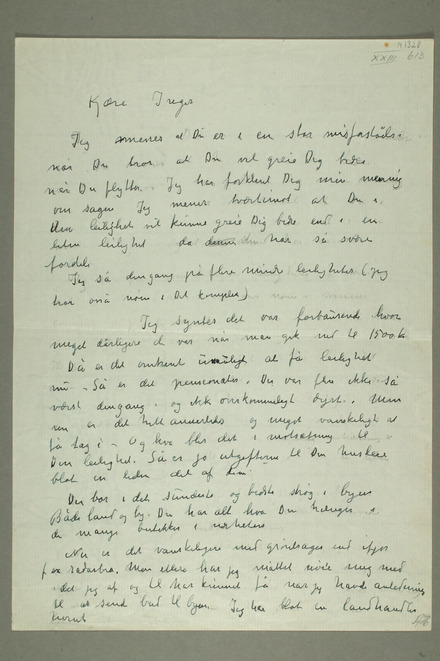 N 1328
XXIII 613
Kjære Inger
Jeg mener at Du er i en stor misforståelse
når Du tror at Du vil greie Dig bedre
når Du flytter. Jeg har forklart Dig min mening
om sagen Jeg mener tvertimot at Du i
den leilighet vil kunne greie Dig bedre end i en
liten leilighet da denne har så svære
fordele
Jeg så dengang på flere mindre leiligheter (jeg
har også noen i Det kompleks)
Jeg syntes det var forbausende hvor
meget dårligere det var når man gik ned til 1500 kr
Da er det omtrent umuligt at få leilighet
nu – Så er det pensionater. De var flere ikke så
værst dengang og ikke omkommeligt dyrt. Men
nu er det helt annerledes og meget vanskeligt at
få tag i – Og hva blir det i motsætning til
Din leilighet. Så er jo utgifterne til Din husleie
blot en liten del af
Du bor i det sundeste og bedste strøg i byen
Både land og by. Du har alt hva Du trænger i
de mange butikker i nærheten
Nu er det vanskeligere med grønsager end ifjor
for rødarbei. Men ellers har jeg måttet nøie mig med
det jeg af og til har kunnet få når jeg havde anledning
til at sende bud til byen. Jeg har blot en landhandler